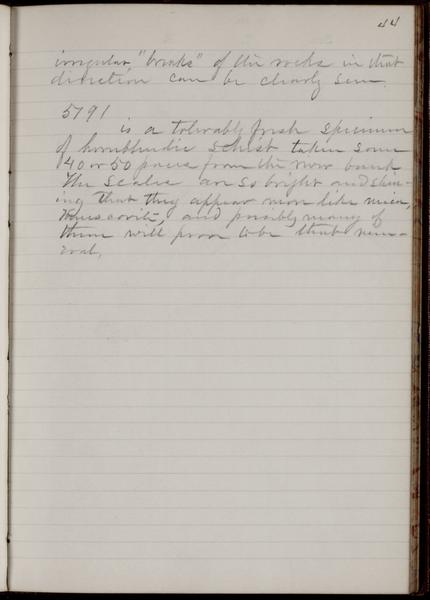 44
irregular, "breaks" of the rocks in that
direction can be clearly seen.
5791
is a tolerably fresh specimen
of hornblendic schist taken some
40 or 50 paces from the river bank
The scales are so bright and shin-
ing that they appear more like mica,
muscovite, and possibly many of
them will prove to be that min-
eral,